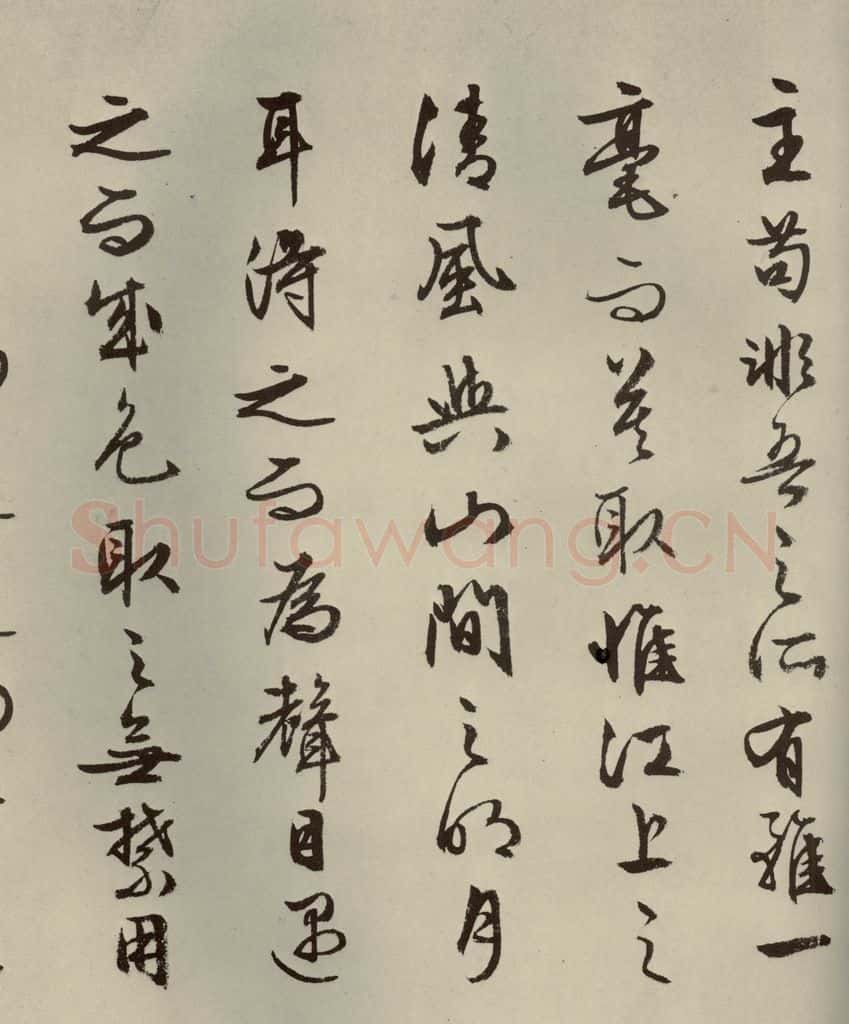 主苟非吾之所有雖一
毫而莫取惟江上之
清風與山間之明月
耳得之而為聲目遇
之而成色取之無禁用
Shufawang.CN